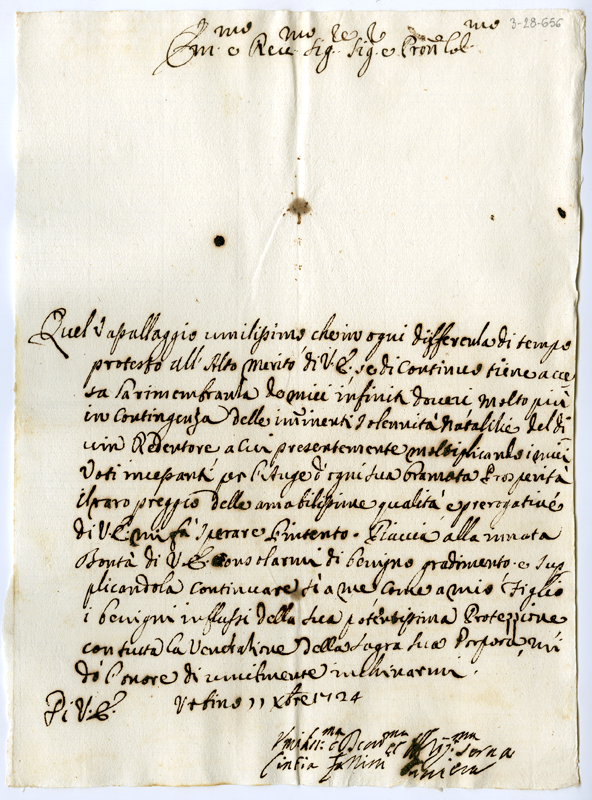 3-28-656
Em.mo e Reu.mo Sig.re Sig.re e Pron Col.mo
Quel Vassallaggio umilissimo che in ogni differenza di tempo
protesto all' Alto merito di V.E., se di Continuo tiene acce
sa la rimembranza de miei infiniti doueri molto più
in Contingenza delle imminenti Solennità Natalizie del di
uin Redentore a cui presentemente moltiplicando i miei
Voti incessanti per l'Auge d'ogni sua bramata Prosperità
il raro preggio delle amabilissime qualità e prerogatiue
di V.E. mi fà sperare l'intento. Piaccia alla innata
Bontà di V.E. Consolarmi di benigno gradimento e sup
plicandola Continuare sì a me Come a mio Figlio
i benigni influssi della sua potentissima Protezzione
con tutta la Venerazione della Sagra Sua Porpora, mi
dò l'onore di umilmente inchinarmi.
Di V.E. Vrbino 11 Xbre 1724
Vmiliss.ma Deuot.ma
Cintia Serua